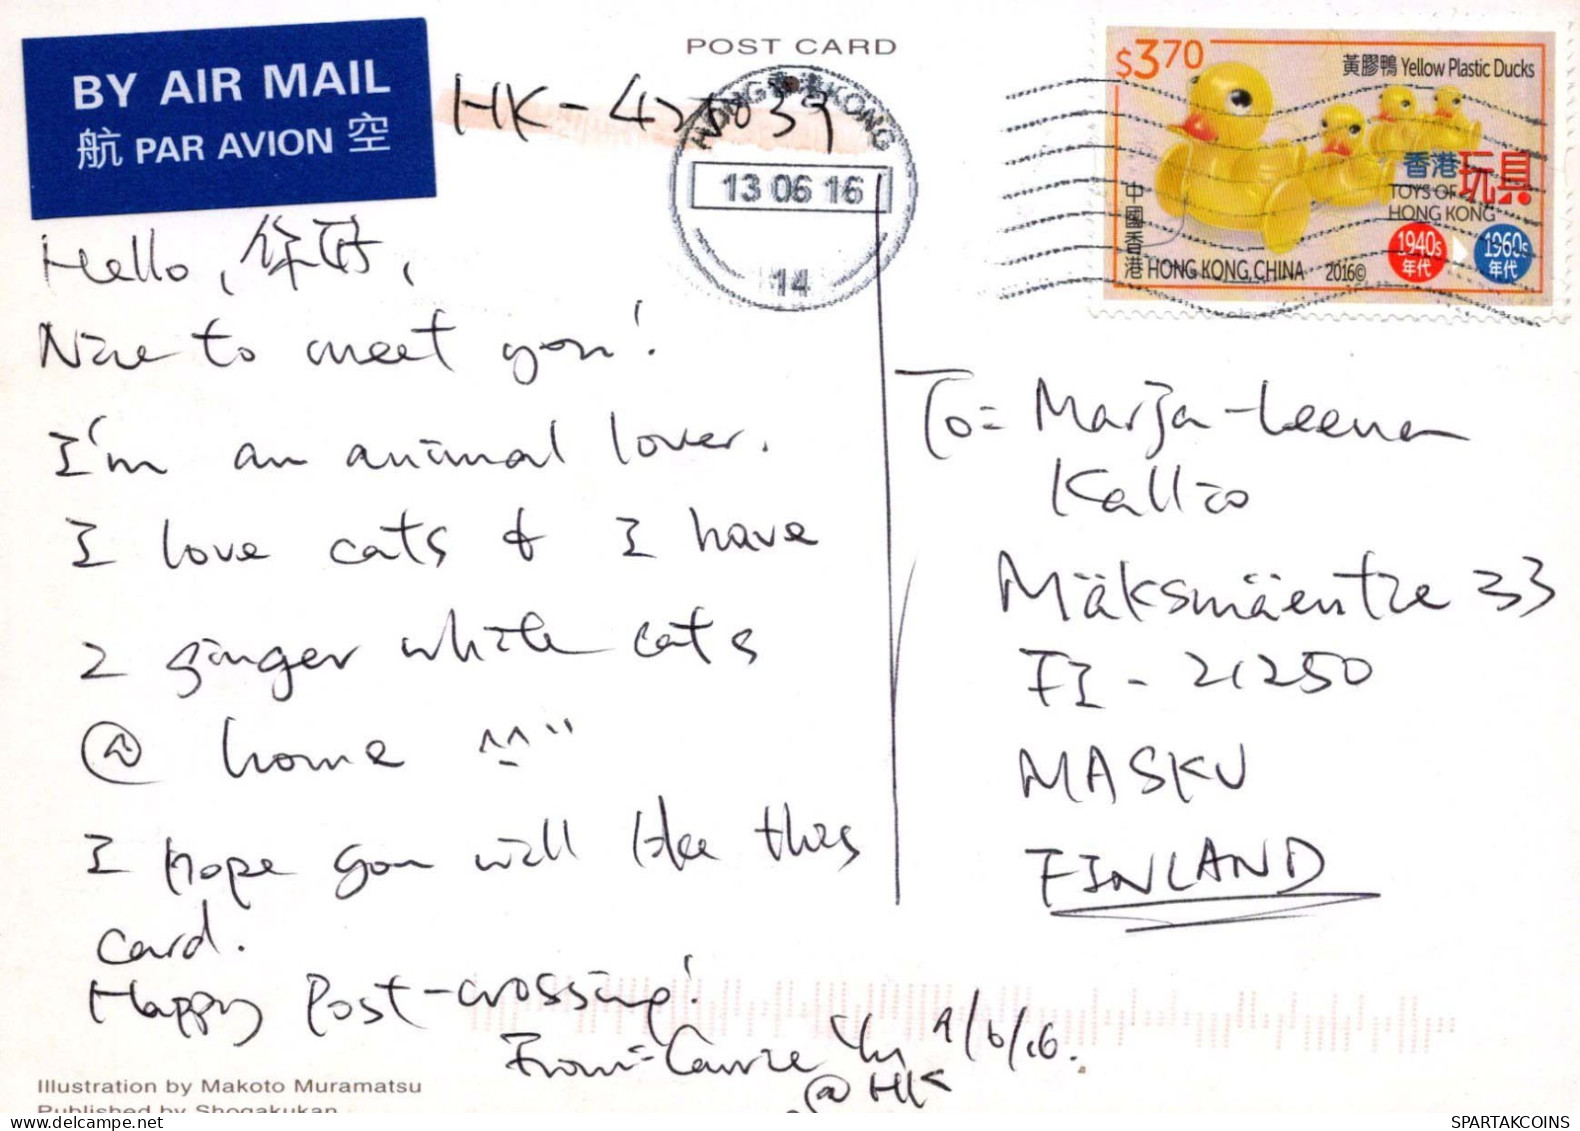 BY AIR MAIL
航 PAR AVION 空
POST CARD
HK-425039
HONG KONG 香港
13 06 16
14
$3.70
黃膠鴨 Yellow Plastic Ducks
香港玩具
TOYS OF
HONG KONG
1940s
年代
1960s
年代
中國香港
HONG KONG, CHINA 2016©
Hello, 你好,
Nice to meet you!
I'm an animal lover.
I love cats & I have
2 ginger white cats
@ home ^_^"
I hope you will like this
card.
Happy Post-crossing!
From = Yu 9/6/16.
@ HK
To = Marja-Leena
Kallio
Mäksmäentie 33
FI - 21250
MASKU
FINLAND
Illustration by Makoto Muramatsu
Published by Shogakukan
SPARTAKCOINS.COM